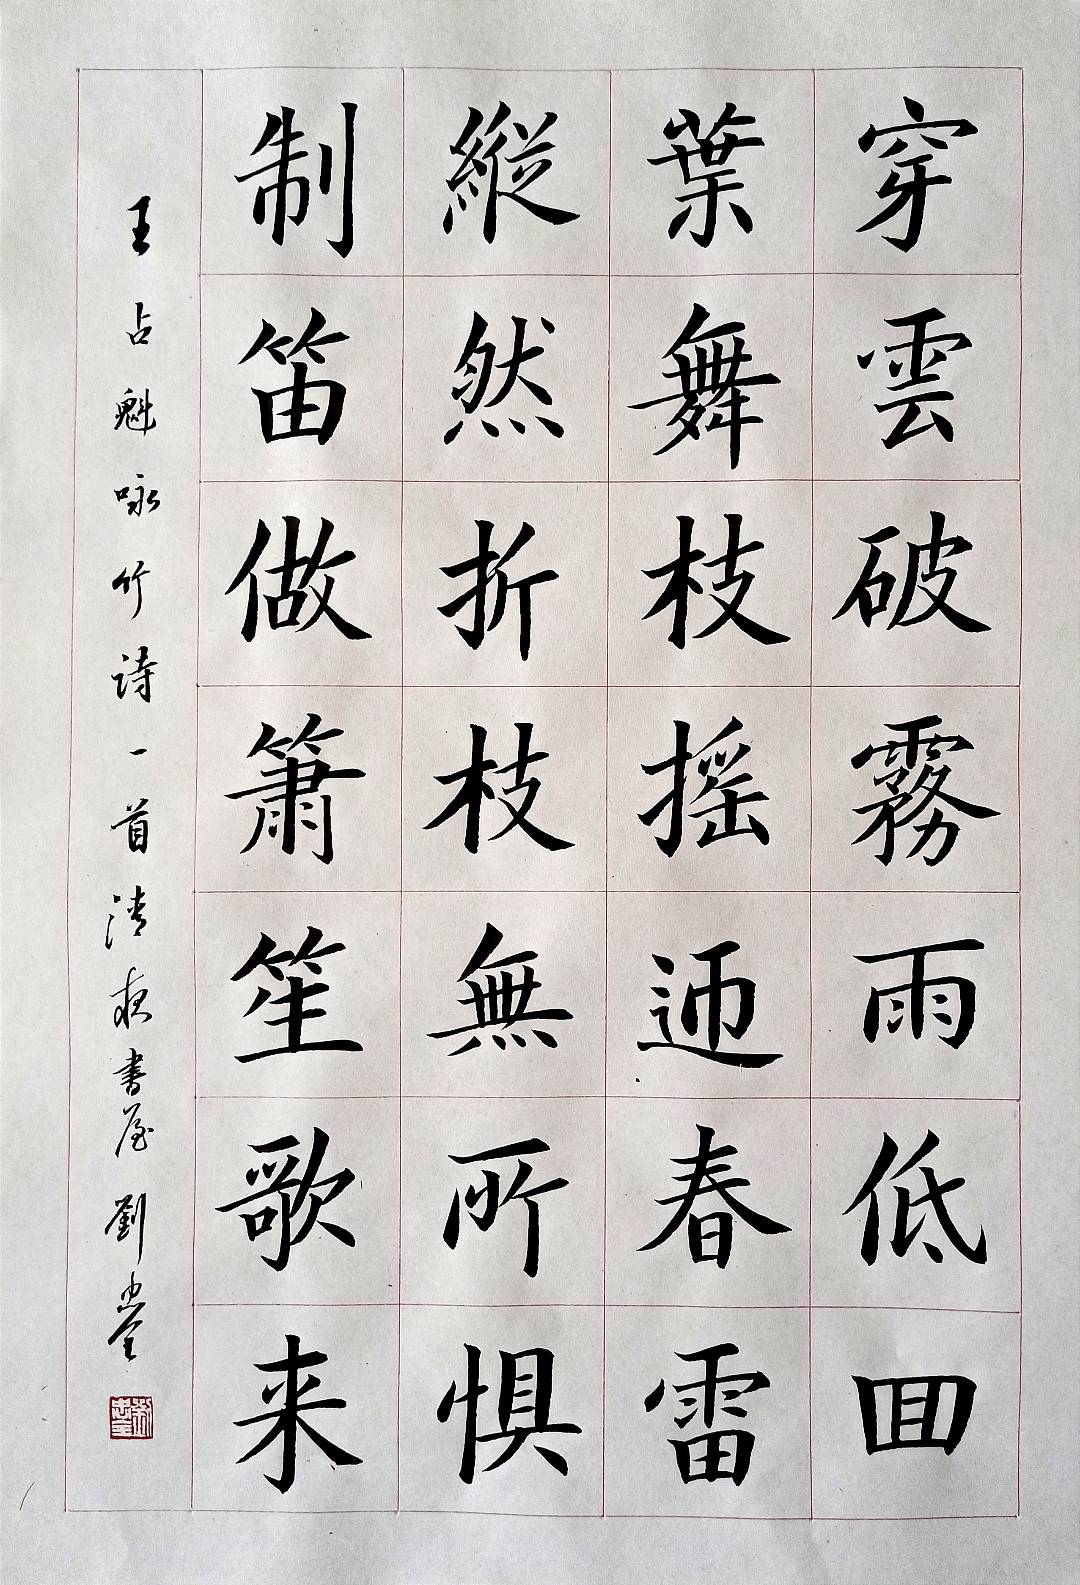 穿雲破霧雨低回
葉舞枝摇迊春雷
縱然折枝無所惧
制笛做簫笙歌来
王占魁咏竹诗一首清夜書屋劉忠全